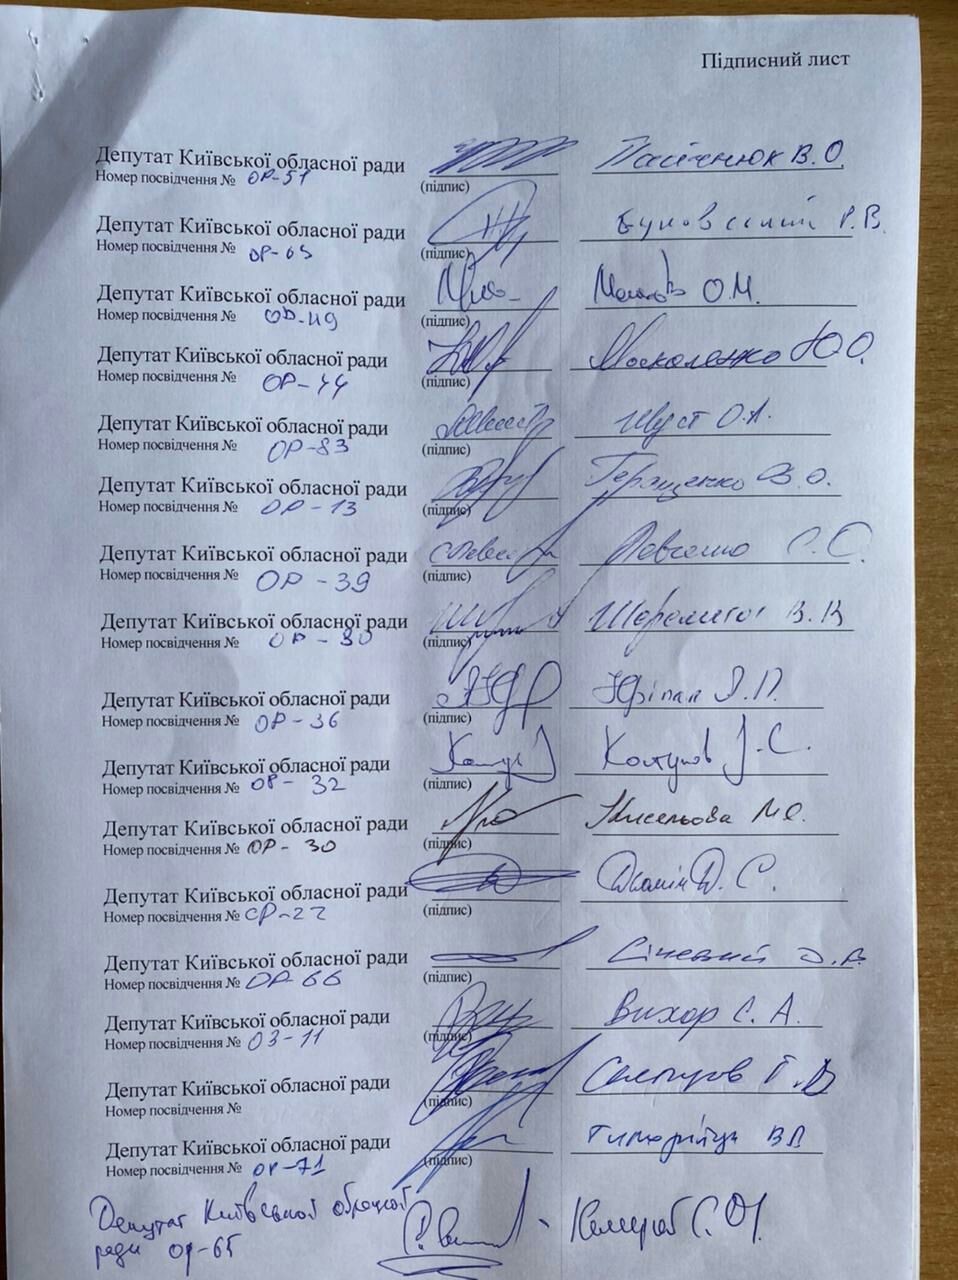 Підписний лист
Депутат Київської обласної ради Пасічнюк В.О.
Номер посвідчення № ОР-51 (підпис)
Депутат Київської обласної ради Буковський Р.В.
Номер посвідчення № ОР-65 (підпис)
Депутат Київської обласної ради О.М.
Номер посвідчення № ОР-49 (підпис)
Депутат Київської обласної ради Москаленко Ю.О.
Номер посвідчення № ОР-44 (підпис)
Депутат Київської обласної ради Шуст О.А.
Номер посвідчення № ОР-83 (підпис)
Депутат Київської обласної ради Геращенко В.О.
Номер посвідчення № ОР-13 (підпис)
Депутат Київської обласної ради Левченко С.О.
Номер посвідчення № ОР-39 (підпис)
Депутат Київської обласної ради Шеремета В.В
Номер посвідчення № ОР-80 (підпис)
Депутат Київської обласної ради П.
Номер посвідчення № ОР-36 (підпис)
Депутат Київської обласної ради Колтунов С.
Номер посвідчення № ОР-32 (підпис)
Депутат Київської обласної ради Кисельова М.О.
Номер посвідчення № ОР-30 (підпис)
Депутат Київської обласної ради Домін Д.С.
Номер посвідчення № СР-22 (підпис)
Депутат Київської обласної ради
Номер посвідчення № ОР-66 (підпис)
Депутат Київської обласної ради Вихор С.А.
Номер посвідчення № 03-11 (підпис)
Депутат Київської обласної ради
Номер посвідчення № (підпис)
Депутат Київської обласної ради
Номер посвідчення № ОР-71 (підпис)
Депутат Київської обласної
ради ОР-65